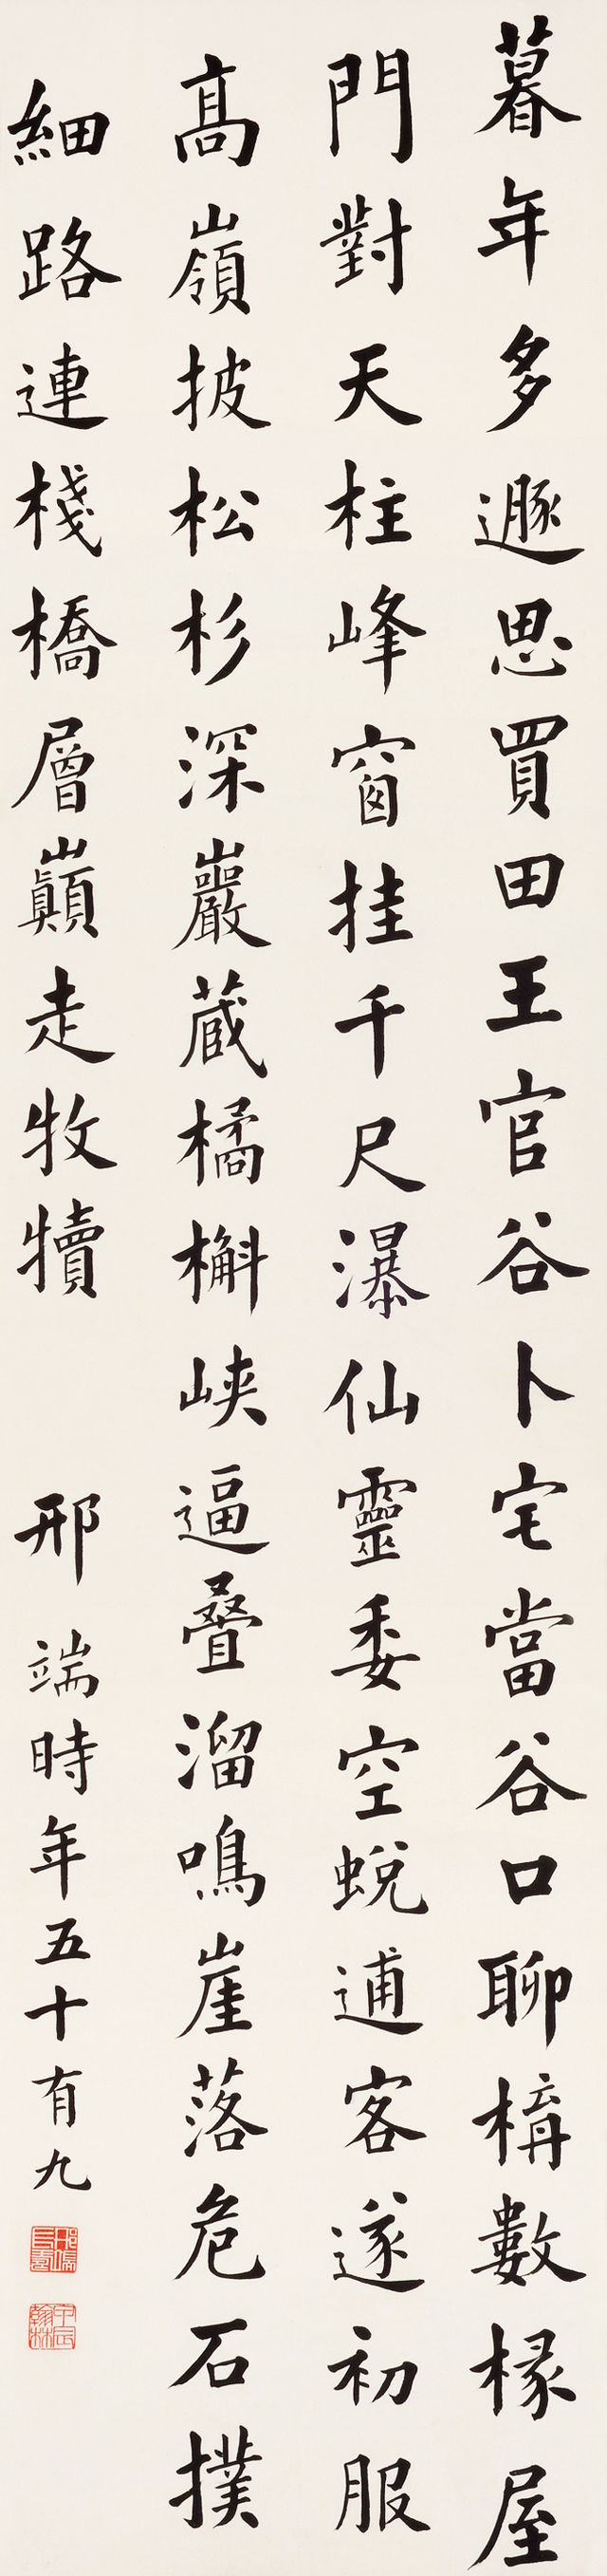 暮年多遯思買田王官谷卜宅當谷口聊構數椽屋
門對天柱峰窗挂千尺瀑仙靈委空蛻逋客遂初服
高嶺披松杉深巖蔵橘槲峽逼疊溜鳴崖落危石撲
細路連棧橋層巔走牧犢
邢端時年五十有九
邢端長壽
甲辰翰林